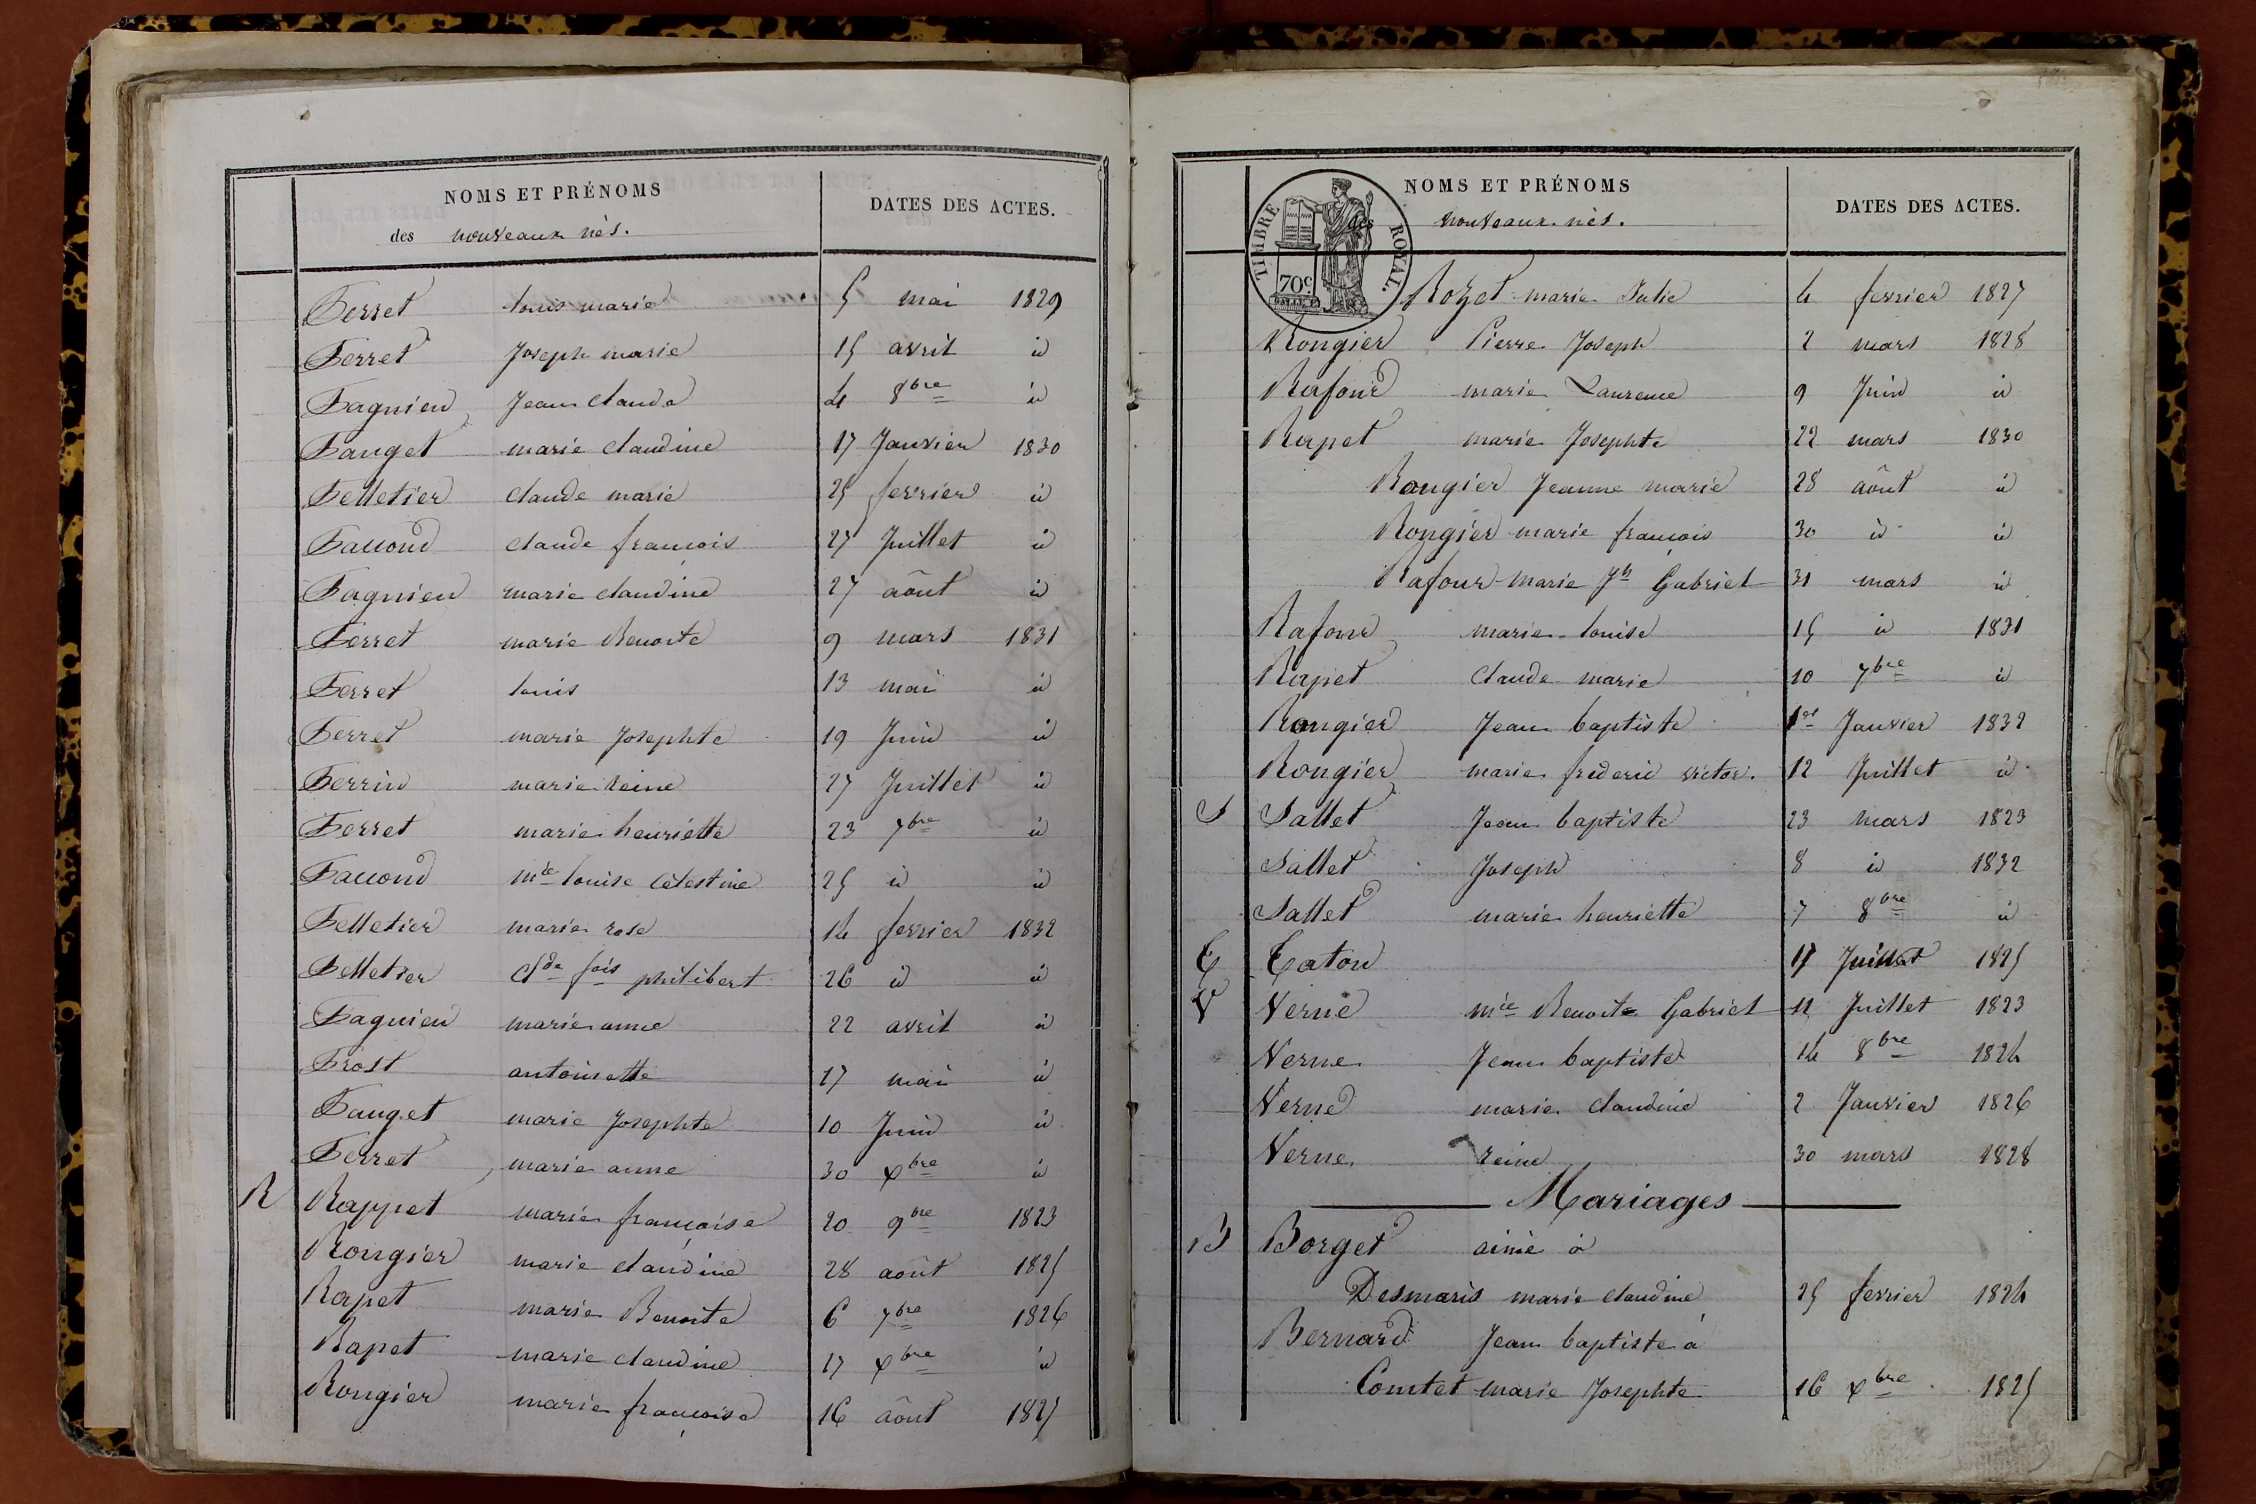 NOMS ET PRÉNOMS
des nouveaux nés.
DATES DES ACTES.
Perret louis marie 5 mai 1829
Perret Joseph marie 15 avril id
Pagnieu Jean claude 4 8bre id
Pauget marie claudine 17 Janvier 1830
Pelletier claude marie 25 fevrier id
Paccoud claude francois 27 Juillet id
Pagnieu marie claudine 27 aôut id
Perret marie Benoite 9 mars 1831
Perret louis 13 mai id
Perret marie Josephte 19 Juin id
Perrin marie reine 27 Juillet id
Perret marie henriette 23 7bre id
Paccoud mie louise celestine 25 id id
Pelletier marie rose 14 fevrier 1832
Pelletier Clde fois philibert 26 id id
Pagnieu marie anne 22 avril id
Prost antoinette 17 mai id
Pauget marie Josephte 10 Juin id
Perret marie anne 30 xbre id
R Rappet marie françoise 20 9bre 1823
Rongier marie claudine 28 août 1825
Rapet marie Benoite 6 7bre 1826
Rapet marie claudine 17 xbre id
Rongier marie françoise 16 aôut 1825
NOMS ET PRÉNOMS
des nouveaux nés.
DATES DES ACTES.
TIMBRE ROYAL.
70c
Rozet marie Julie 4 fevrier 1827
Rongier Pierre Joseph 2 mars 1828
Rafour marie Laurence 9 Juin id
Rapet marie Josephte 22 mars 1830
Rongier Jeanne marie 28 aôut id
Rongier marie francois 30 id id
Rafour marie Jh Gabriel 31 mars id
Rafour marie louise 15 id 1831
Rapet claude marie 10 7bre id
Rongier Jean baptiste 1er Janvier 1832
Rongier marie frederic victor. 12 Juillet id
S Sallet Jean baptiste 23 mars 1823
Sallet Joseph 8 id 1832
Sallet marie henriette 7 8bre id
T Taton 17 Juillet 1825
V Verne mie Benoite Gabriel 11 Juillet 1823
Verne Jean baptiste 14 8bre 1824
Verne marie claudine 2 Janvier 1826
Verne reine 30 mars 1828
Mariages
B Borget aimé à
Desmaris marie claudine 25 fevrier 1824
Bernard Jean baptiste à
Comtet marie Josephte 16 xbre 1825